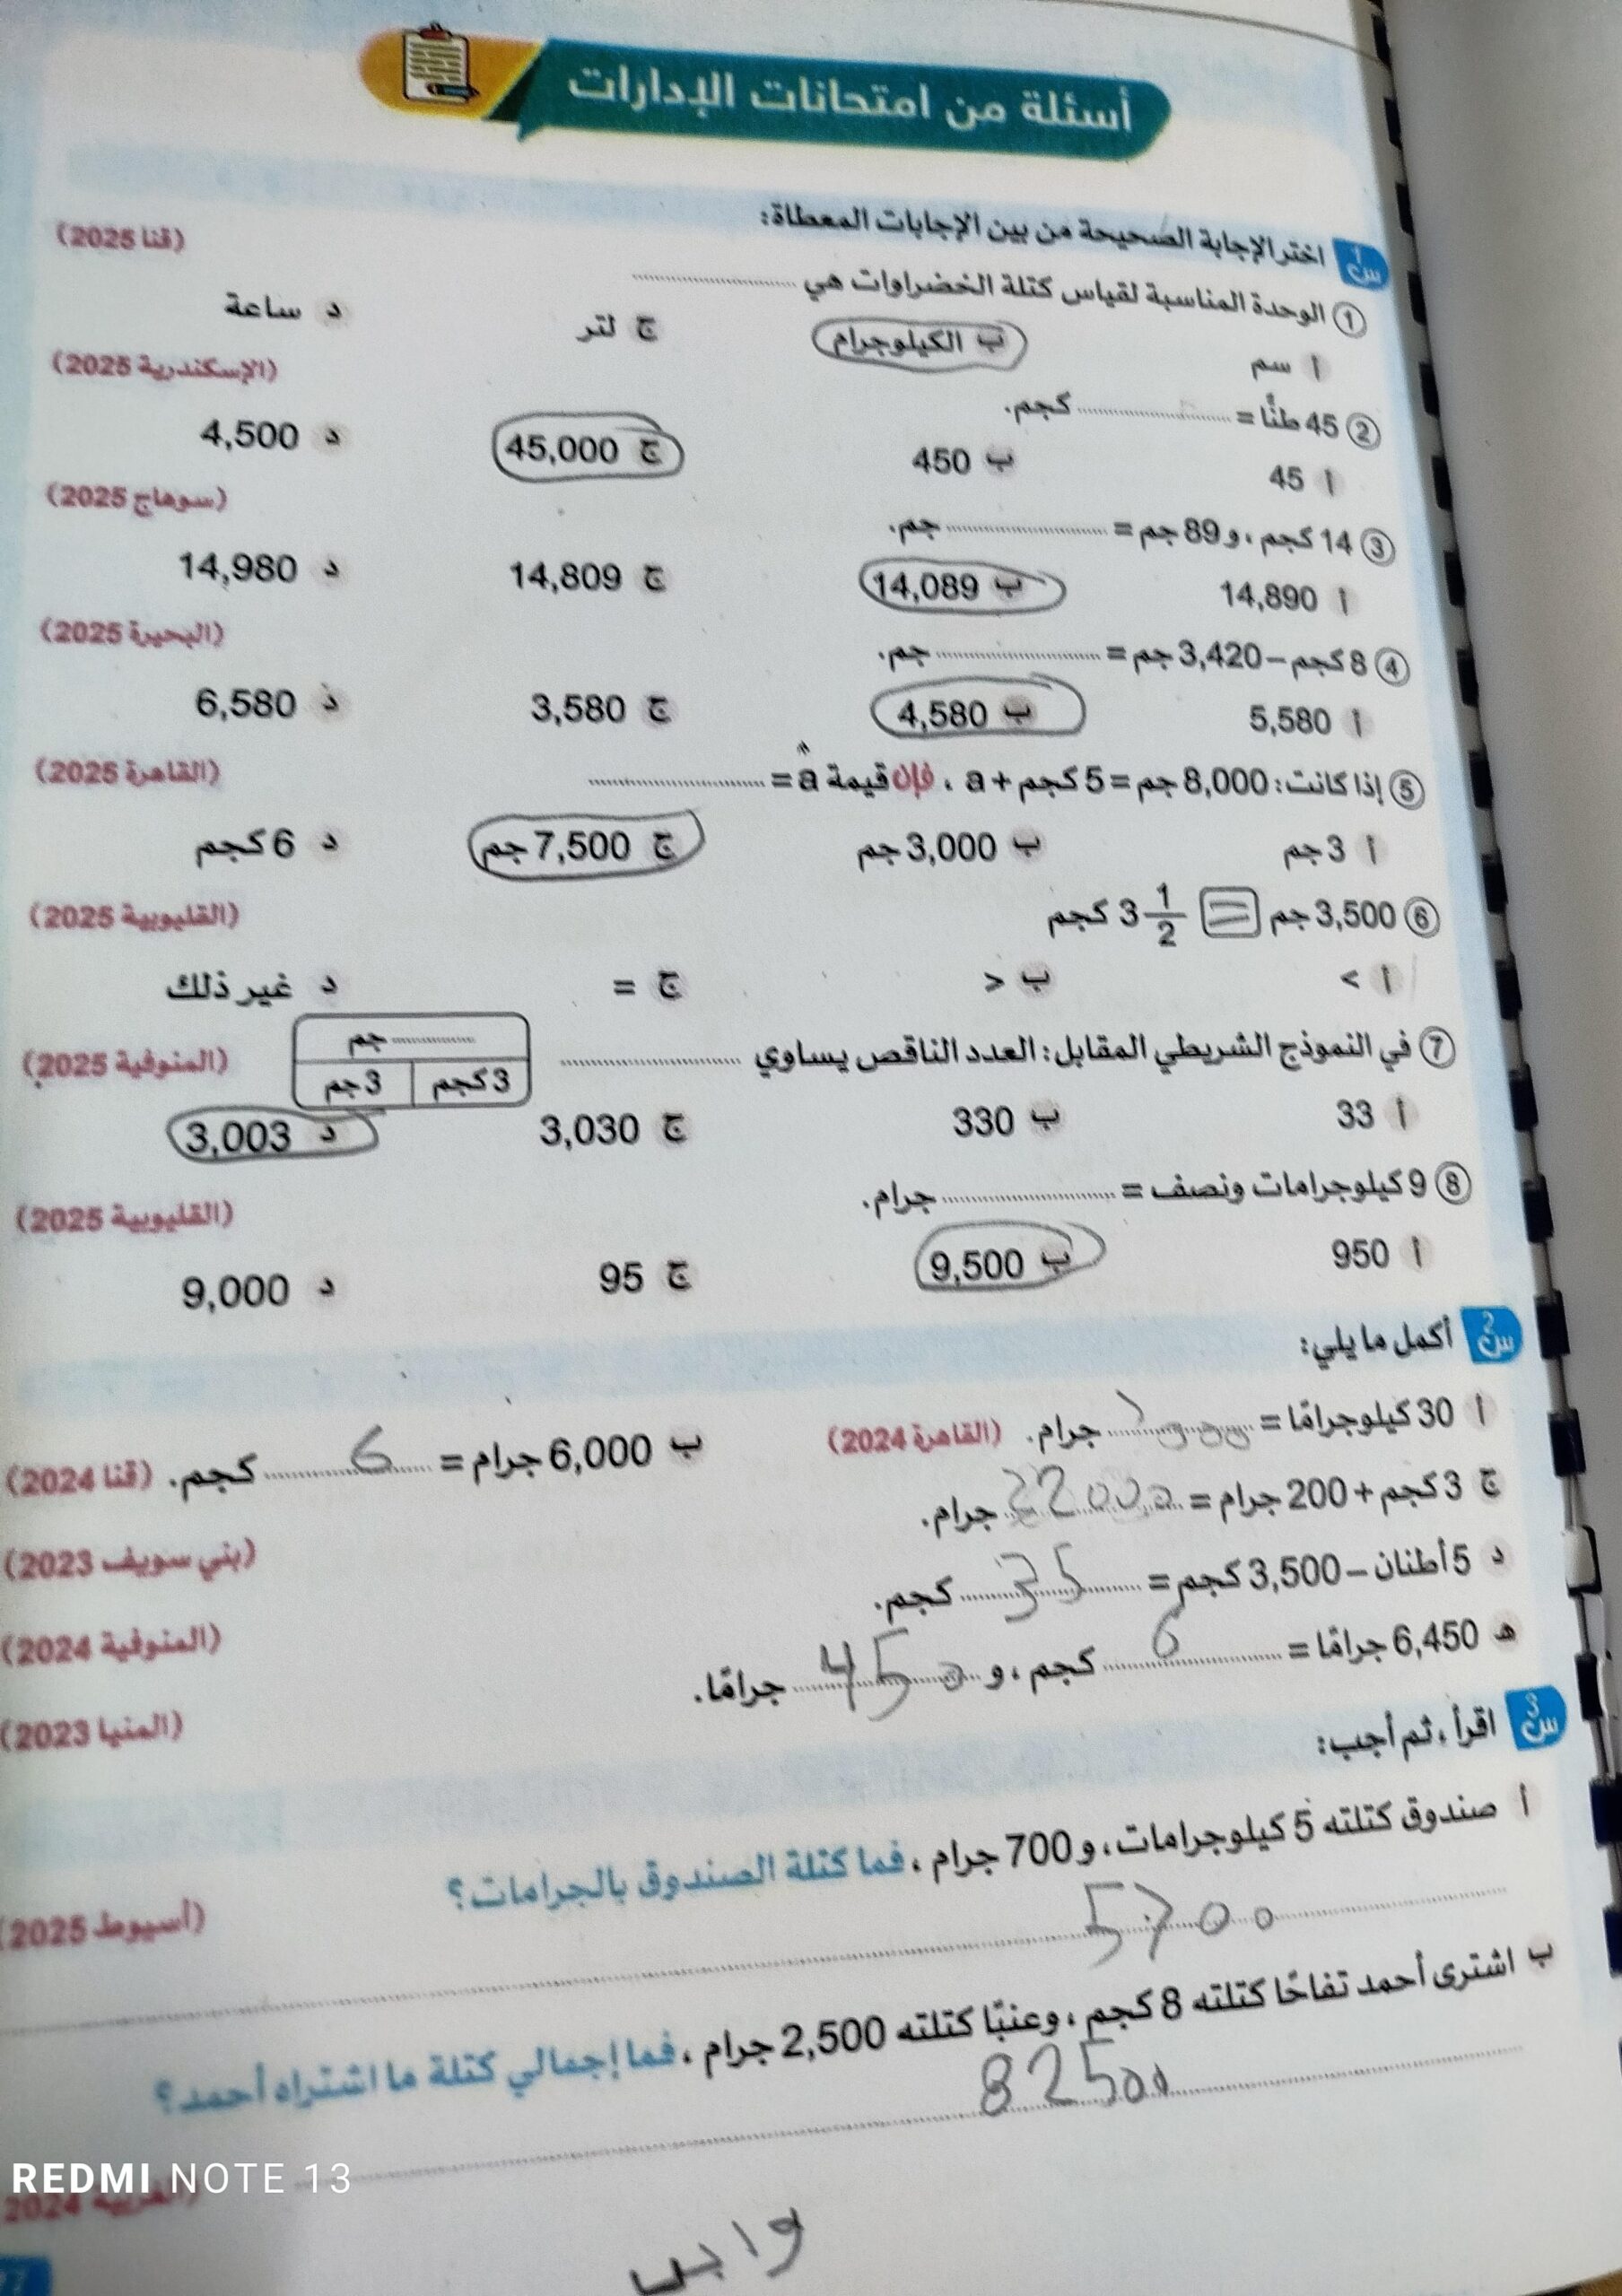 أسئلة من امتحانات الإدارات
س1 اختر الإجابة الصحيحة من بين الإجابات المعطاة:
1 الوحدة المناسبة لقياس كتلة الخضراوات هي .......... (قنا 2025)
أ سم ب الكيلوجرام ج لتر د ساعة
2 45 طنًّا = .......... كجم. (الإسكندرية 2025)
أ 45 ب 450 ج 45,000 د 4,500
3 14 كجم، و 89 جم = .......... جم. (سوهاج 2025)
أ 14,890 ب 14,089 ج 14,809 د 14,980
4 8 كجم – 3,420 جم = .......... جم. (البحيرة 2025)
أ 5,580 ب 4,580 ج 3,580 د 6,580
5 إذا كانت: 8,000 جم = 5 كجم + a ، فإن قيمة a = .......... (القاهرة 2025)
أ 3 جم ب 3,000 جم ج 7,500 جم د 6 كجم
6 3,500 جم = 3 1/2 كجم (القليوبية 2025)
أ > ب < ج = د غير ذلك
7 في النموذج الشريطي المقابل: العدد الناقص يساوي .......... (المنوفية 2025)
.......... جم
3 كجم 3 جم
أ 33 ب 330 ج 3,030 د 3,003
8 9 كيلوجرامات ونصف = .......... جرام. (القليوبية 2025)
أ 950 ب 9,500 ج 95 د 9,000
س2 أكمل ما يلي:
أ 30 كيلوجرامًا = .......... جرام. (القاهرة 2024) ب 6,000 جرام = 6 كجم. (قنا 2024)
ج 3 كجم + 200 جرام = .......... جرام. (بني سويف 2023)
د 5 أطنان – 3,500 كجم = 35 كجم. (المنوفية 2024)
هـ 6,450 جرامًا = 6 كجم، و 450 جرامًا. (المنيا 2023)
س3 اقرأ، ثم أجب:
أ صندوق كتلته 5 كيلوجرامات، و 700 جرام، فما كتلة الصندوق بالجرامات؟ (أسيوط 2025)
5700
ب اشترى أحمد تفاحًا كتلته 8 كجم، وعنبًا كتلته 2,500 جرام، فما إجمالي كتلة ما اشتراه أحمد؟
82500
REDMI NOTE 13